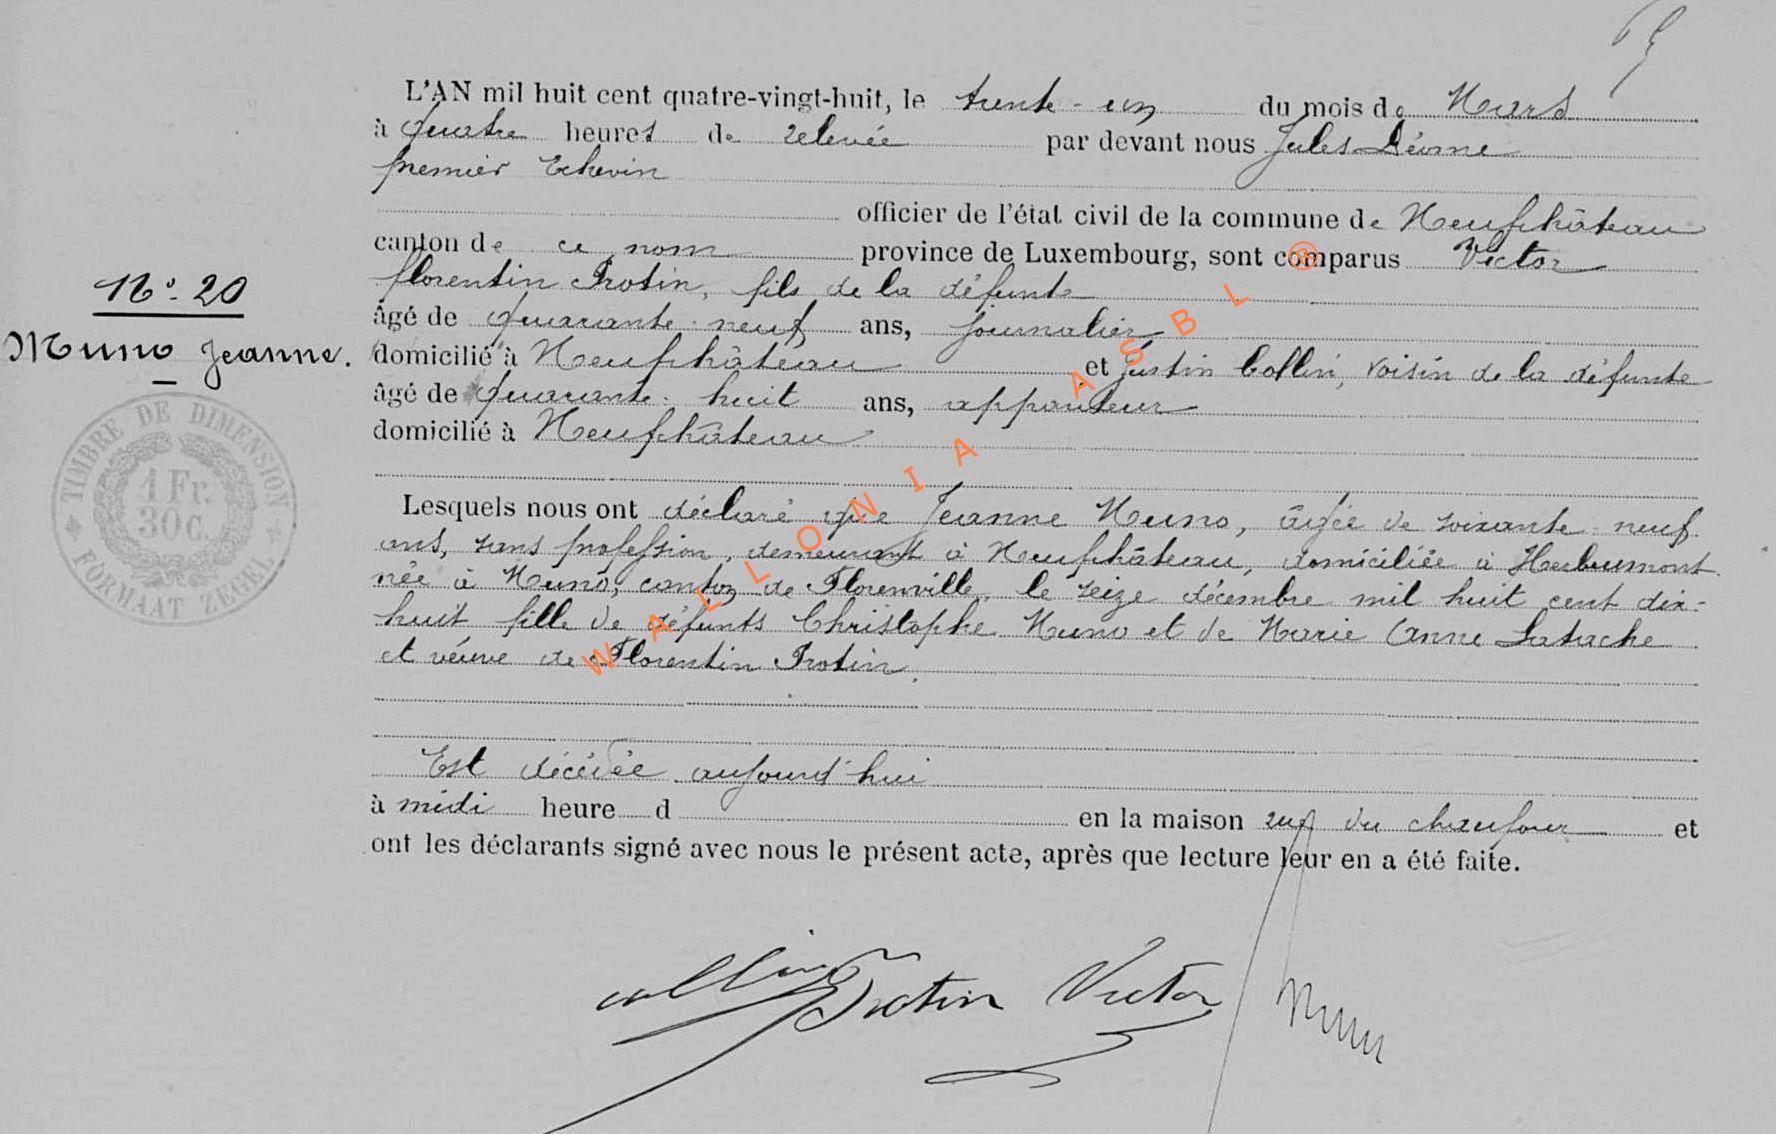 L'AN mil huit cent quatre-vingt-huit, le trente-un du mois de Mars
à quatre heures de relevée par devant nous Jules
premier Echevin
officier de l'état civil de la commune de Neufchâteau
canton de ce nom province de Luxembourg, sont comparus Victor
florentin Trotin, fils de la défunte
N° 20
âgé de quarante-neuf ans, journalier
Muno Jeanne.
domicilié à Neufchâteau et Justin Collin, voisin de la défunte
âgé de quarante-huit ans, appariteur
domicilié à Neufchâteau
TIMBRE DE DIMENSION
1 Fr.
30 C.
FORMAAT ZEGEL
Lesquels nous ont déclaré que Jeanne Muno, âgée de soixante-neuf
ans, sans profession, demeurant à Neufchâteau, domiciliée à Herbeumont
née à Muno, canton de Florenville, le seize décembre mil huit cent dix-
huit fille de défunts Christophe Muno et de Marie Anne Latache
et veuve de Florentin Trotin.
Est décédée aujourd'hui
à midi heure d en la maison rue du chaufour et
ont les déclarants signé avec nous le présent acte, après que lecture leur en a été faite.
collin Trotin Victor
WALLONIA ASBL ®